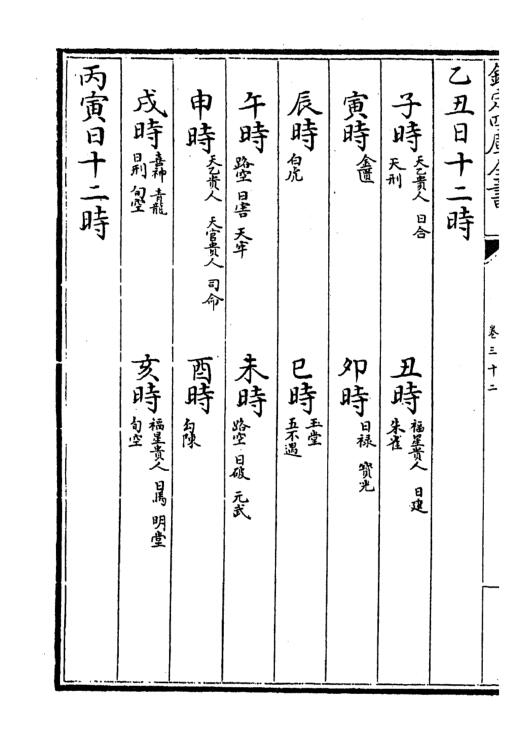 欽定四庫全書
卷三十二
乙丑日十二時
子時 天乙貴人 日合 天刑
丑時 福星貴人 日建 朱雀
寅時 金匱
卯時 日祿 寳光
辰時 白虎
巳時 玉堂 五不遇
午時 路空 日害 天牢
未時 路空 日破 元武
申時 天乙貴人 天官貴人 司命
酉時 勾陳
戌時 喜神 青龍 日刑 旬空
亥時 福星貴人 日馬 明堂 旬空
丙寅日十二時